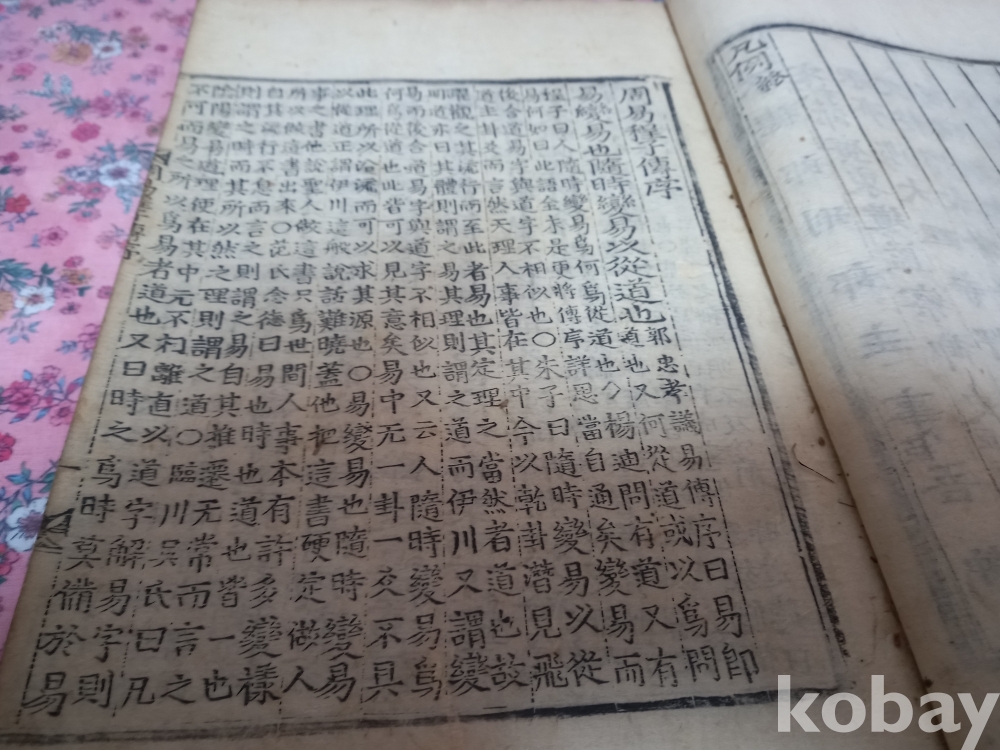 周易程子傳序
易變易也隨時變易以從道也郭忠孝議易傳序曰易即
道也又何從道或以爲問
程子曰人隨時變易爲何爲從道也〇楊迪問有道又有
易何如曰此語全未是更將傳序詳思當自通矣變易而
後合道易字與道字不相似也〇朱子曰隨時變易以從
道主卦爻而言然天理人事皆在其中今以乾卦潛見飛
躍觀之其流行而至此者易也其定理之當然者道也故
明道亦曰其體則謂之易其理則謂之道而伊川又謂變
易而後合道易字與道字不相似也又云人隨時變易爲
何爲從道也此皆可以見其意矣易中无一卦一爻不具
此理所以沿流而可以求其源也〇易變易也隨時變易
以從道正謂伊川這般說話難曉蓋他把這書硬定做人
事之書他說聖人做這書只爲世間人事本有許多變樣
所以做這書出來〇范氏念德曰易也時也道也皆一也
自其流行不息而言之則謂之易自其推遷无常而言之
則謂之時而其所以然之理則謂之道〇臨川吳氏曰凡
陰陽變易道理便在其中元不相離直以道字解易字則
不可而易之所以爲易者道也又曰時之爲時莫備於易
凡例終
kobay